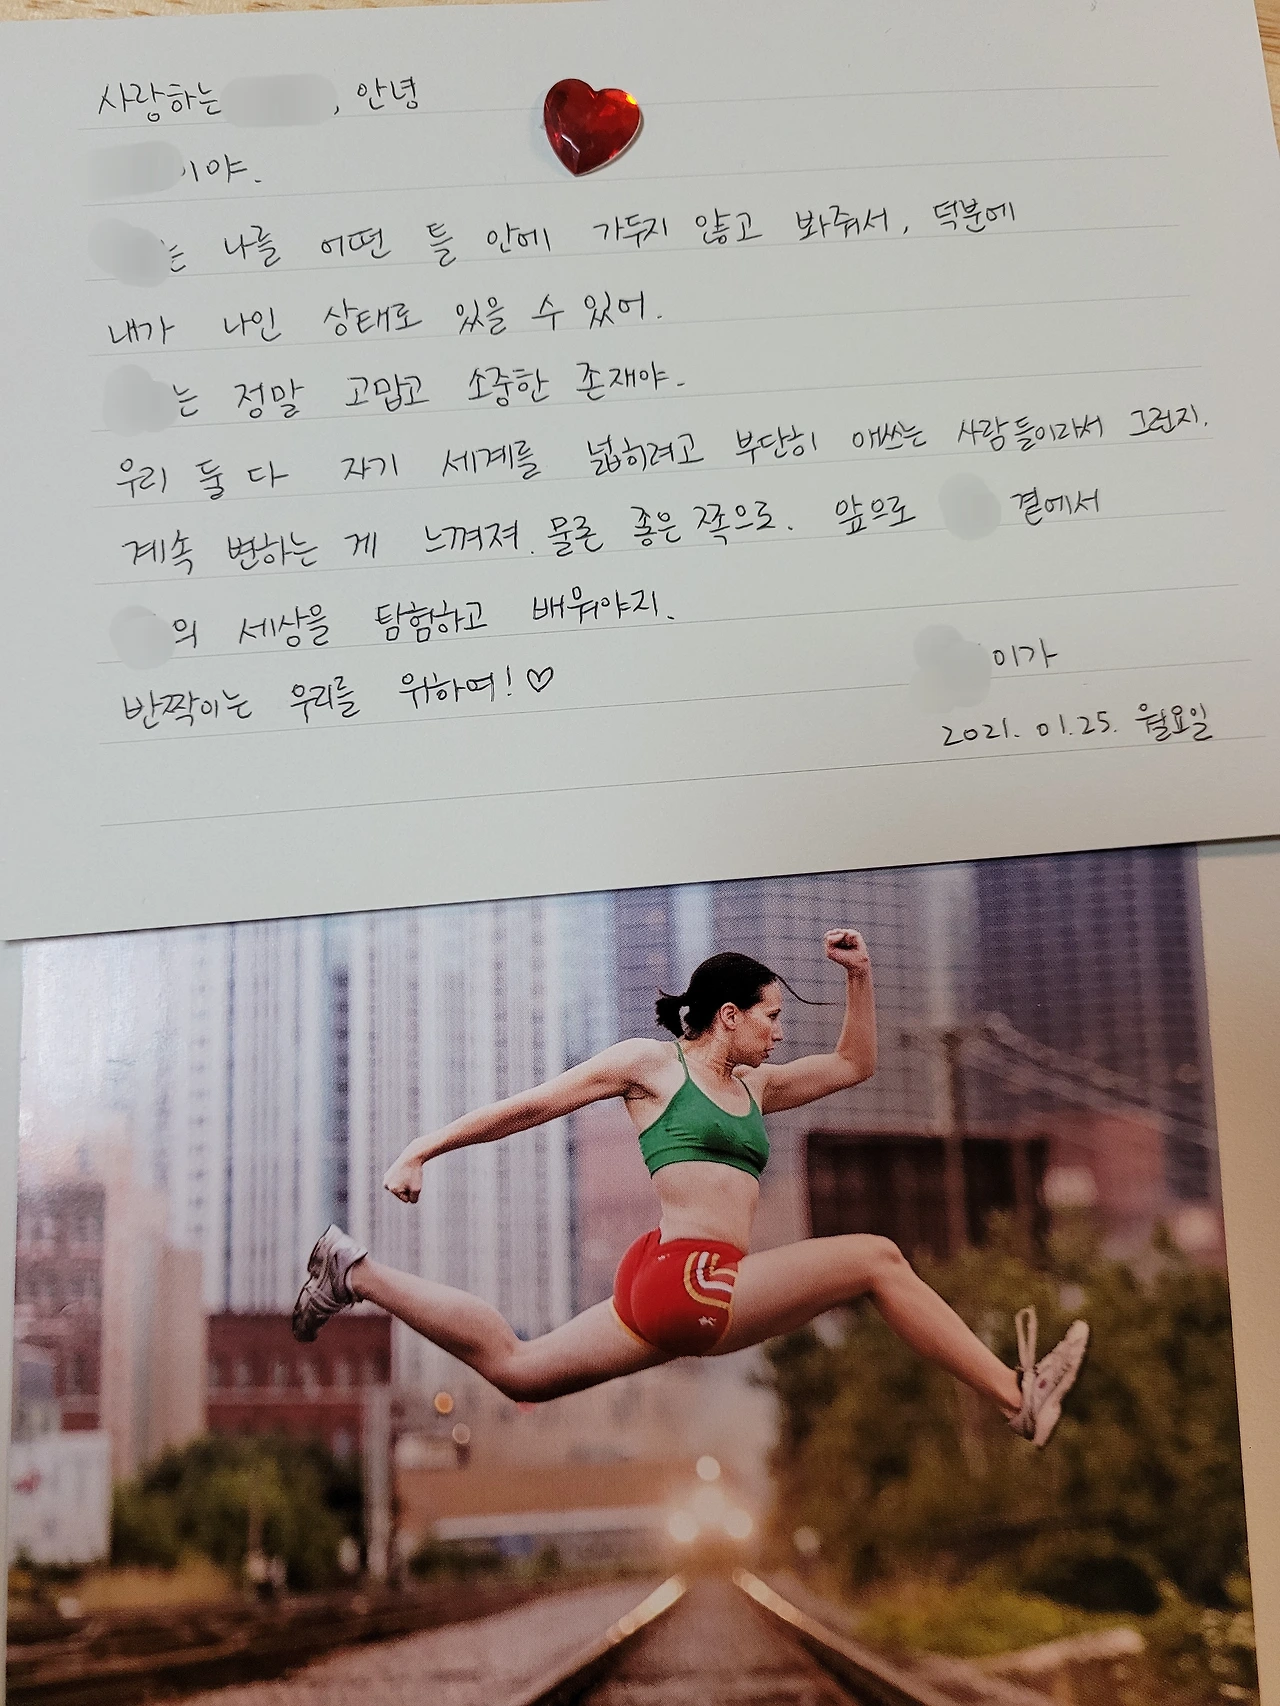 사랑하는 , 안녕
이야.
는 나를 어떤 틀 안에 가두지 않고 봐줘서, 덕분에
내가 나인 상태로 있을 수 있어.
는 정말 고맙고 소중한 존재야.
우리 둘 다 자기 세계를 넓히려고 부단히 애쓰는 사람들이라서 그런지.
계속 변하는 게 느껴져. 물론 좋은 쪽으로. 앞으로 곁에서
의 세상을 탐험하고 배워야지.
반짝이는 우리를 위하여! ♡
이가
2021. 01. 25. 월요일